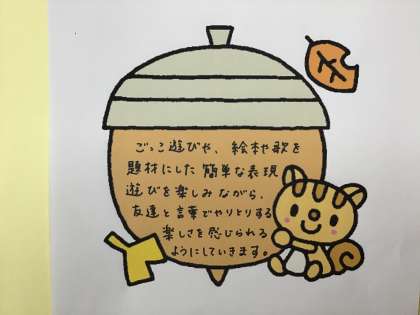 ごっこ遊びや、絵本や歌を
題材にした簡単な表現
遊びを楽しみながら、
友達と言葉でやりとりする
楽しさを感じられる
ようにしていきます。